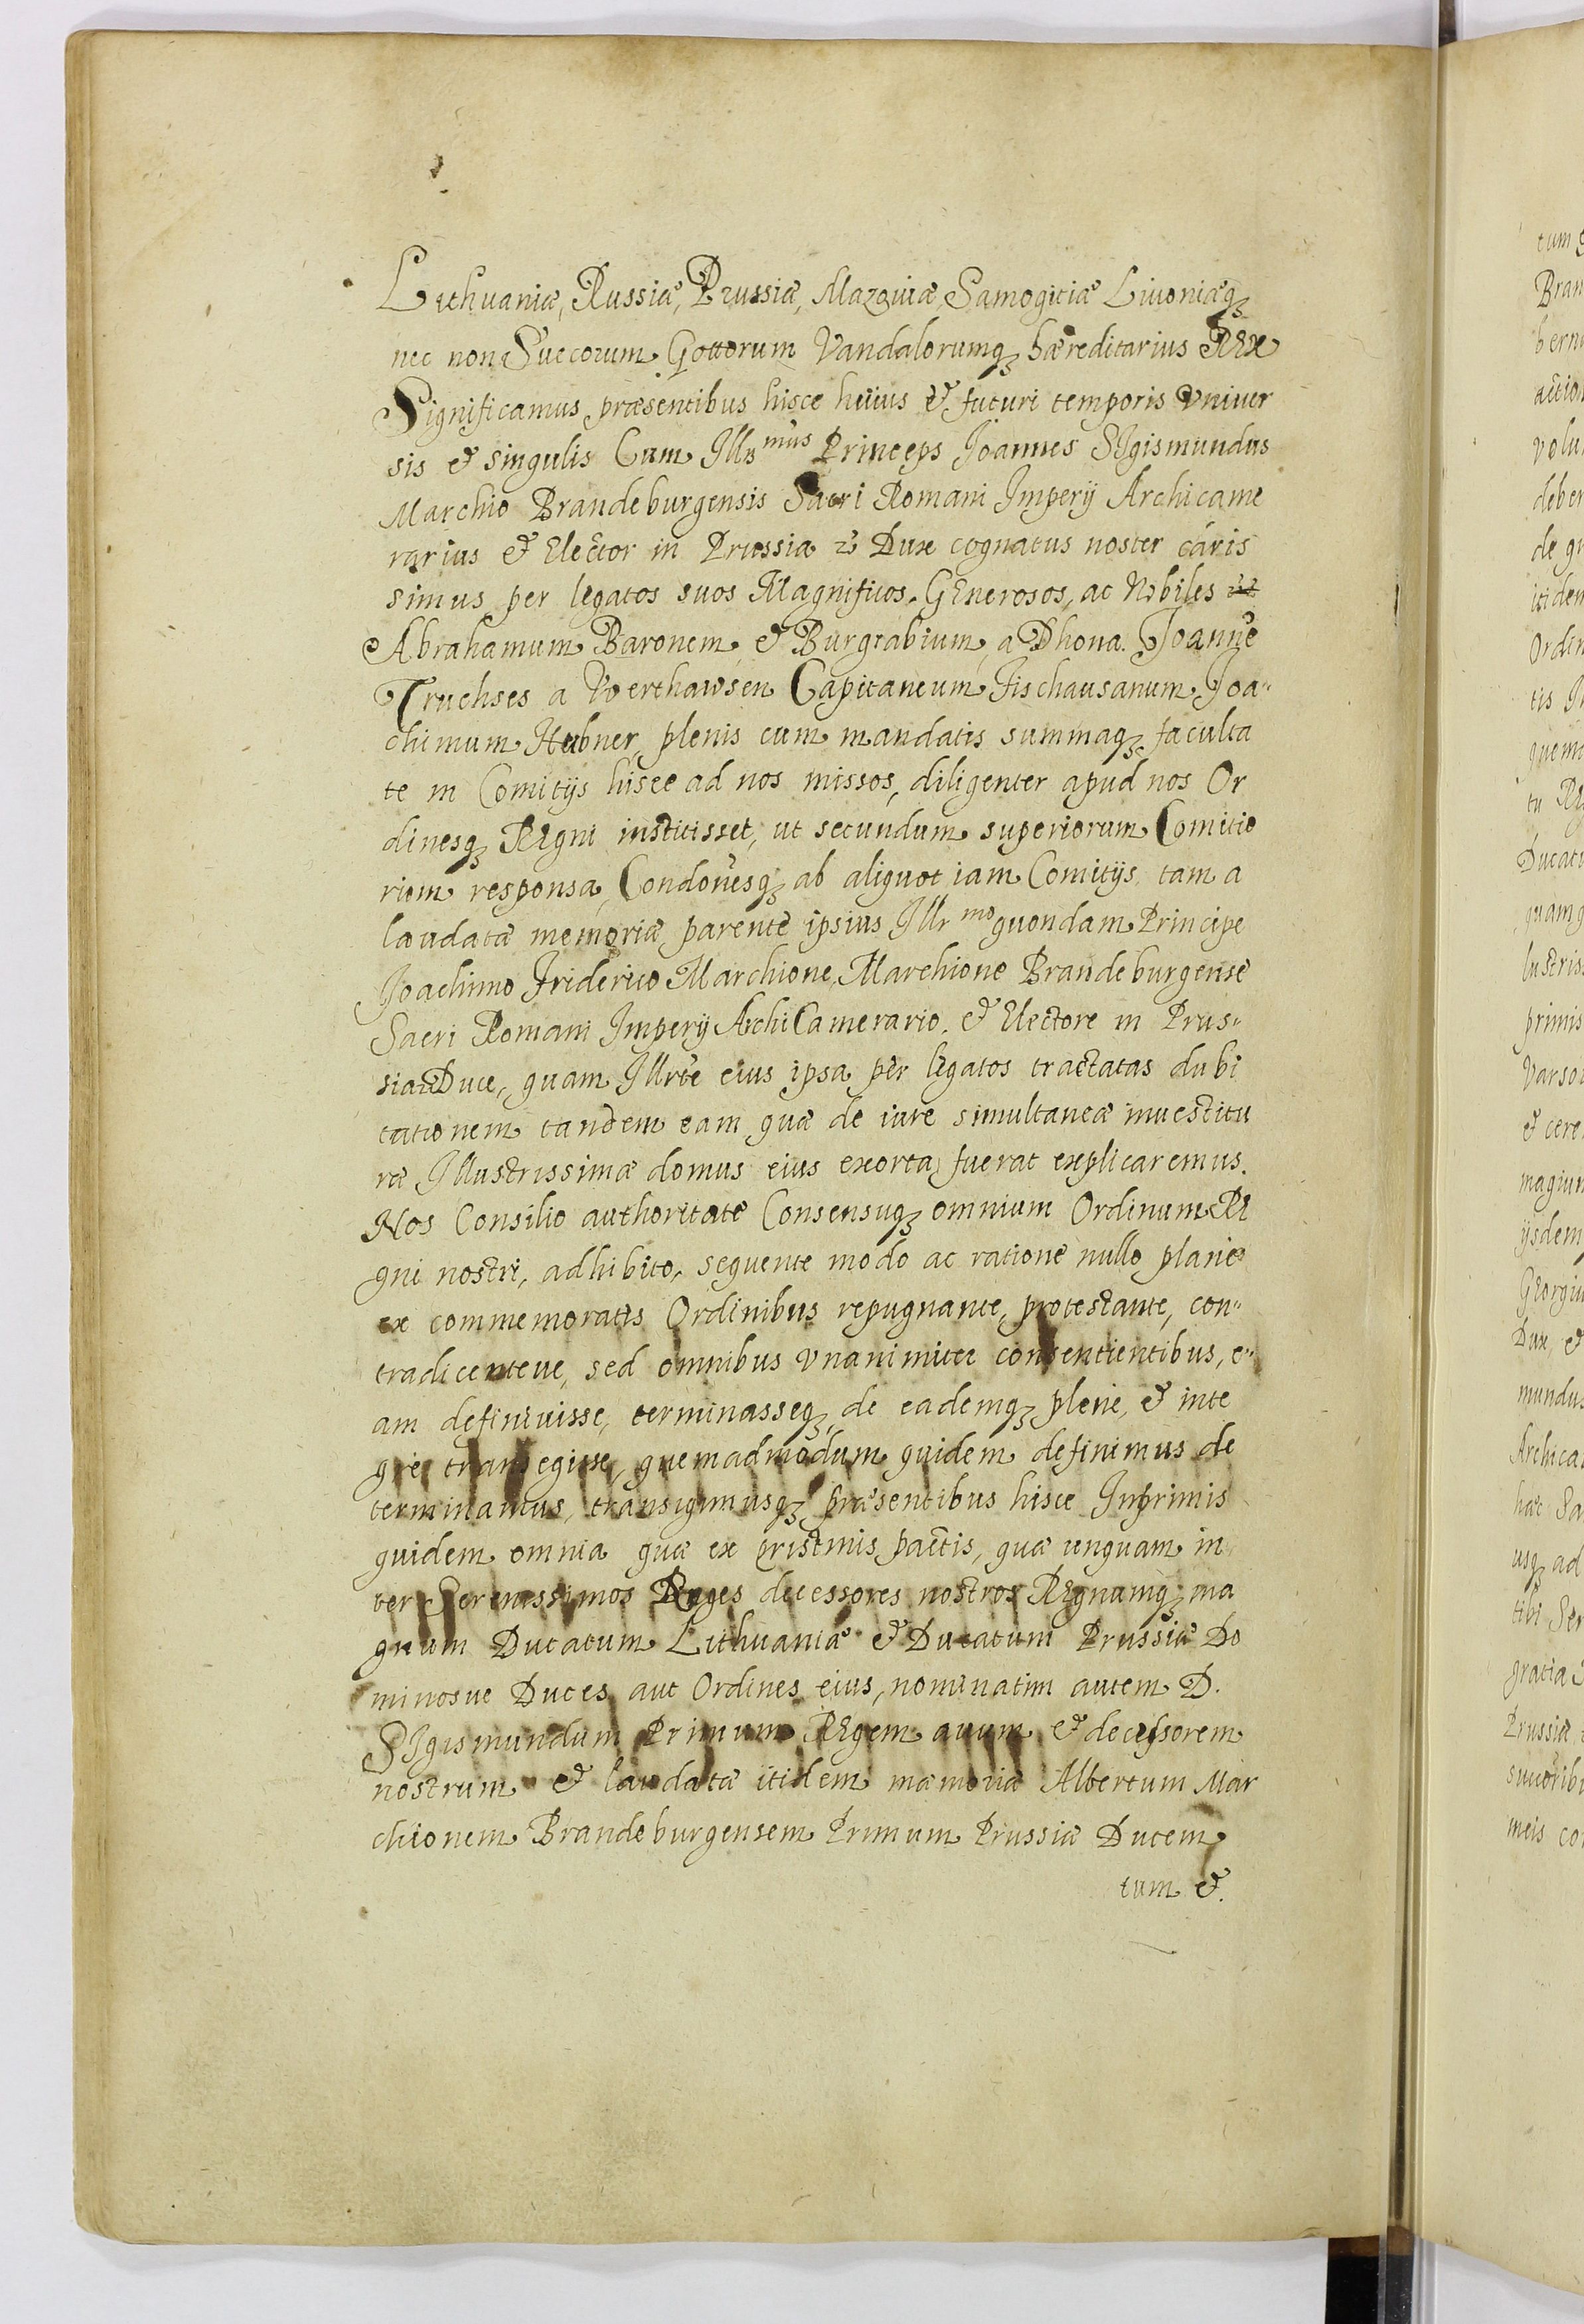 Lithuaniæ, Russiæ, Prussiæ, Mazouiæ, Samogitiæ Liuoniæq3
nec non Suecorum Gottorum Vandalorumq3 hæreditarius REx
Significamus præsentibus hisce huius & futuri temporis vniuer
sis & singulis Cum Illrmus Princeps Joannes SIgismundus
Marchio Brandeburgensis Sacri Romani Imperij Archicame
rarius & Elector in Prussia Dux cognatus noster caris
simus per legatos suos Magnificos, GEnerosos, ac Nobiles
Abrahamum Baronem & Burgrabium a Dhona. Joanne
Truchses a Werthawsen Capitaneum Fischausanum Joa-
chimum Hubner, plenis cum mandatis summaq3 faculta
te in Comitijs hisce ad nos missos, diligenter apud nos Or
dinesq3 REgni institisset, ut secundum superiorum Comitio
rum responsa, Condonesq3 ab aliquot iam Comitijs tam a
laudatæ memoriæ parente ipsius Illrmo quondam Principe
Joachimo Friderico Marchione, Marchione Brandeburgense
Sacri Romani Imperij ArchiCamerario, & Electore in Prus-
sia Duce, quam Illrte eius ipsa per legatos tractatas dubi
tationem tandem eam quæ de iure simultaneæ inuestitu
ræ Illustrissimæ domus eius exorta fuerat explicaremus.
Nos Consilio authoritate Consensuq3 omnium Ordinum RE
gni nostri, adhibito, sequente modo ac ratione nullo plane
ex commemoratis Ordinibus repugnante, protestante, con-
tradicenteue, sed omnibus vnanimiter consentientibus, e-
am definiuisse, terminasseq3, de eademq3 plene, & inte
gre transegisse, quemadmodum quidem definimus de
terminamus, transigimusq3 præsentibus hisce Inprimis
quidem omnia quæ ex pristinis pactis, quæ unquam in
ter Serenissimos Reges decessores nostros REgnumq3 ma
gnum Ducatum Lithuaniæ & Ducatum Prussiæ Do
minosue Duces aut Ordines eius, nominatim autem D.
SIgismundum Primum REgem auum & decessorem
nostrum & laudatæ itidem mæmoriæ Albertum Mar
chionem Brandeburgensem Primum Prussiæ Ducem
tum &.